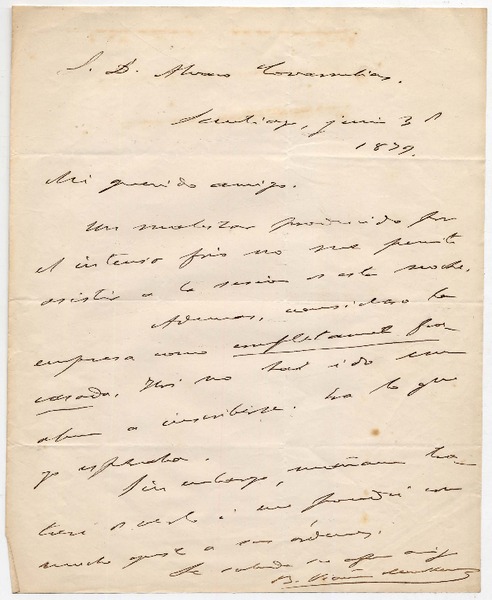 S. D. Alvaro Covarrubias.
Santiago, junio 3
1879.
Mi querido amigo.
Un malestar producido por
el intenso frio no me permite
asistir a la sesion de esta noche.
Ademas, considero la
empresa como completamente fra-
casada. Hoi no ha ido un
alma a inscribirse. Era lo que
yo esperaba.
Sin embargo, mañana
veré i me pondré con
mucho gusto a sus órdenes.
Se saluda su amigo
B. Vicuña Mackenna